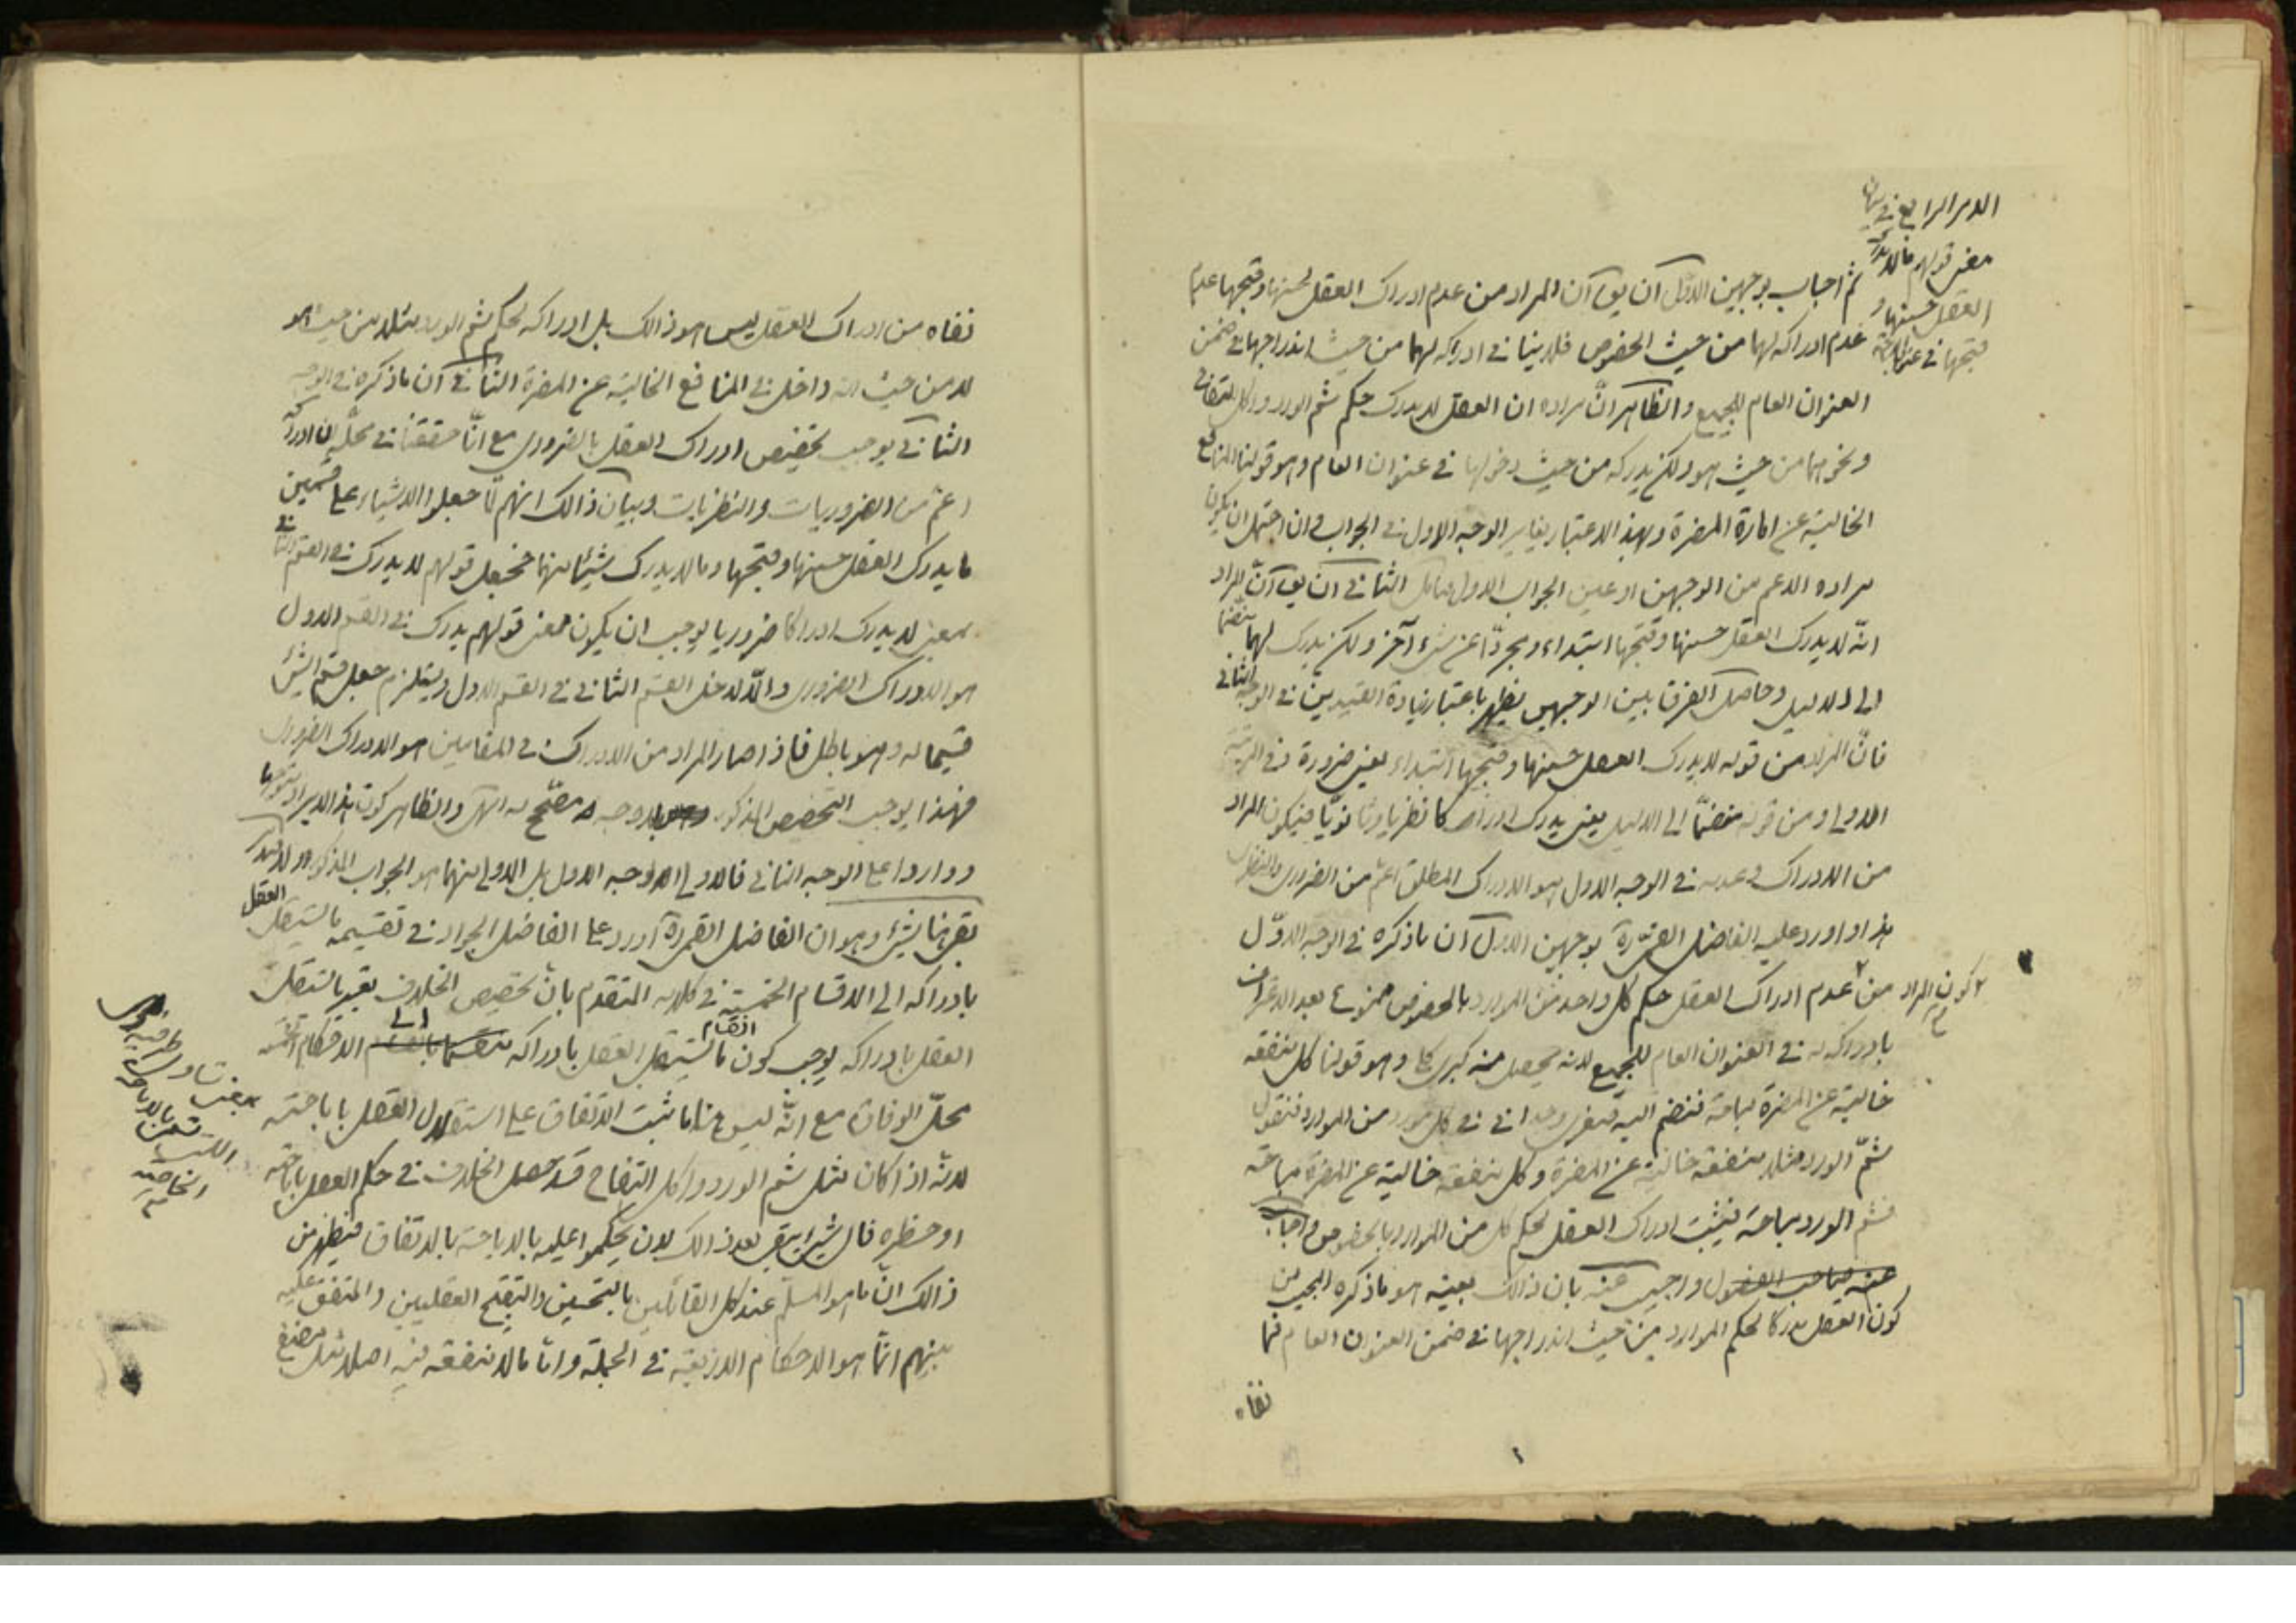 الامر الرابع في بيان
معنى قولهم ما لا يدرك
العقل حسنها و
قبحها في عنوان
ثم اجاب بوجهين الاول آن يق آن المراد من عدم ادراك العقل لحسنها وقبحها عدم
عدم ادراكه لهما من حيث الخصوص فلا ينافي ادراكه لهما من حيث اندراجها في ضمن
العنوان العام للجميع والظاهر انّ مراده ان العقل لا يدرك حكم شم الورد واكل التفاح
ونحوهما من حيث هو ولكن يدركه من حيث دخولها في عنوان العام وهو قولنا المنافع
الخالية عن امارة المضرة وبهذا الاعتبار يغاير الوجه الاول في الجواب وان احتمل ان يكون
مراده الاعم من الوجهين او عين الجواب الاول فتامل الثاني آن يق آنّ المراد
انّه لا يدرك العقل حسنها وقبحها ابتداء ومجردّا عن شيء آخر ولكن يدرك لهما منضما
الى الدليل وحاصل الفرق بين الوجهين يظهر باعتبار زيادة القيدين في الوجه الثاني
فانّ المراد من قوله لا يدرك العقل حسنها وقبحها ابتداء يعني ضرورة في المرتبة
الاولى ومن قوله منضمّا الى الدليل يعني يدرك ادراكا نظريا وثانويّا فيكون المراد
من الادراك وعدمه في الوجه الاول هو الادراك المطلق اعم من الضروري والنظري
هذا واورد عليه الفاضل القمّي ره بوجهين الاول آن ما ذكره في الوجه الاوّل
كون المراد
من عدم ادراك العقل حكم كل واحد من الموارد بالخصوص ممنوع بعد الاعتراف
بادراكه له في العنوان العام للجميع لانه يحصل منه كبرى كلي وهو قولنا كل منفعة
خالية عن المضرة مباحة فنضم اليه صغرى وجداني في كل مورد من الموارد فنقول
شمّ الورد مثلا منفعة خالية عن المضرة وكل منفعة خالية عن المضرة مباحة
فشم الورد مباحة فيثبت ادراك العقل لحكم كل من الموارد بالخصوص واجاب
عنه صاحب الفصول واجيب عنه بان ذلك بعينه هو ما ذكره المجيب من
كون العقل مدركا لحكم الموارد من حيث اندراجها في ضمن العنوان العام فما
نفاه
نفاه من ادراك العقل ليس هو ذالك بل ادراكه لحكم شم الورد مثلا من حيث هو
لا من حيث انه داخل في المنافع الخالية عن المضرة الثاني آن ما ذكره في الوجه
الثاني يوجب تخصيص ادراك العقل بالضروري مع انّا حققنا في محلّه ان ادراكه
اعم من الضروريات والنظريات وبيان ذالك انهم لمّا جعلوا الاشياء على قسمين
ما يدرك العقل حسنها وقبحها وما لا يدرك شيئا منهما فجعل قولهم لا يدرك في القسم الثاني
بمعنى لا يدرك ادراكا ضروريا يوجب ان يكون معنى قولهم يدرك في القسم الاول
هو الادراك الضروري والّا لدخل القسم الثاني في القسم الاول ويستلزم جعل قسم الشيء
قسيما له وهو باطل فاذا صار المراد من الادراك في المقامين هو الادراك الضروري
فهذا يوجب التخصيص المذكور ولا وجه مصحّح له انتهى والظاهر كون هذا الايراد متوجها
وواردا على الوجه الثاني فالاولى الوجه الاول بل الاولى منهما هو الجواب المذكور
بقي هنا شيء وهو ان الفاضل القمي ره اورد على الفاضل الجواد في تقسيمه ما يستقل العقل
بادراكه الى الاقسام الخمسة في كلامه المتقدم بانّ تخصيص الخلاف بغير ما يستقل
العقل بادراكه يوجب كون انقسام ما يستقل العقل بادراكه الى الاحكام الخمسة
محلّ الوفاق مع انّه ليس هنا ما ثبت الاتفاق على استقلال العقل باباحته
لانّه اذا كان مثل شم الورد واكل التفاح قد حصل الخلاف في حكم العقل باباحته
او حظره فاىّ شيء يبقى بعد ذالك لان يحكموا عليه بالاباحة بالاتفاق فيظهر من
ذالك انّ ما هو المسلّم عند كل القائلين بالتحسين والتقبيح العقليين والمتفق عليه
بينهم انّما هو الاحكام الاربعة في الجملة وامّا ما لا منفعة فيه اصلا مثل مضغ
بمعنى تساوي طرفيه